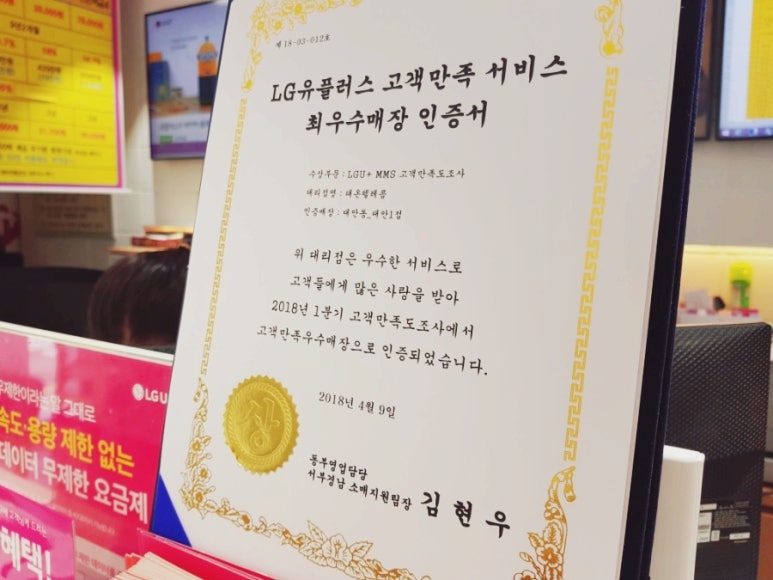 제 18-03-012호
LG유플러스 고객만족 서비스
최우수매장 인증서
수상부문 : LGU+ MMS 고객만족도조사
대리점명 : 태온텔레콤
인증매장 : 대안동_대안1점
위 대리점은 우수한 서비스로
고객들에게 많은 사랑을 받아
2018년 1분기 고객만족도조사에서
고객만족우수매장으로 인증되었습니다.
2018년 4월 9일
상
동부영업담당
서부경남 소매지원팀장 김현우
LG U
무제한이라는 말 그대로
속도·용량 제한 없는
데이터 무제한 요금제
혜택!